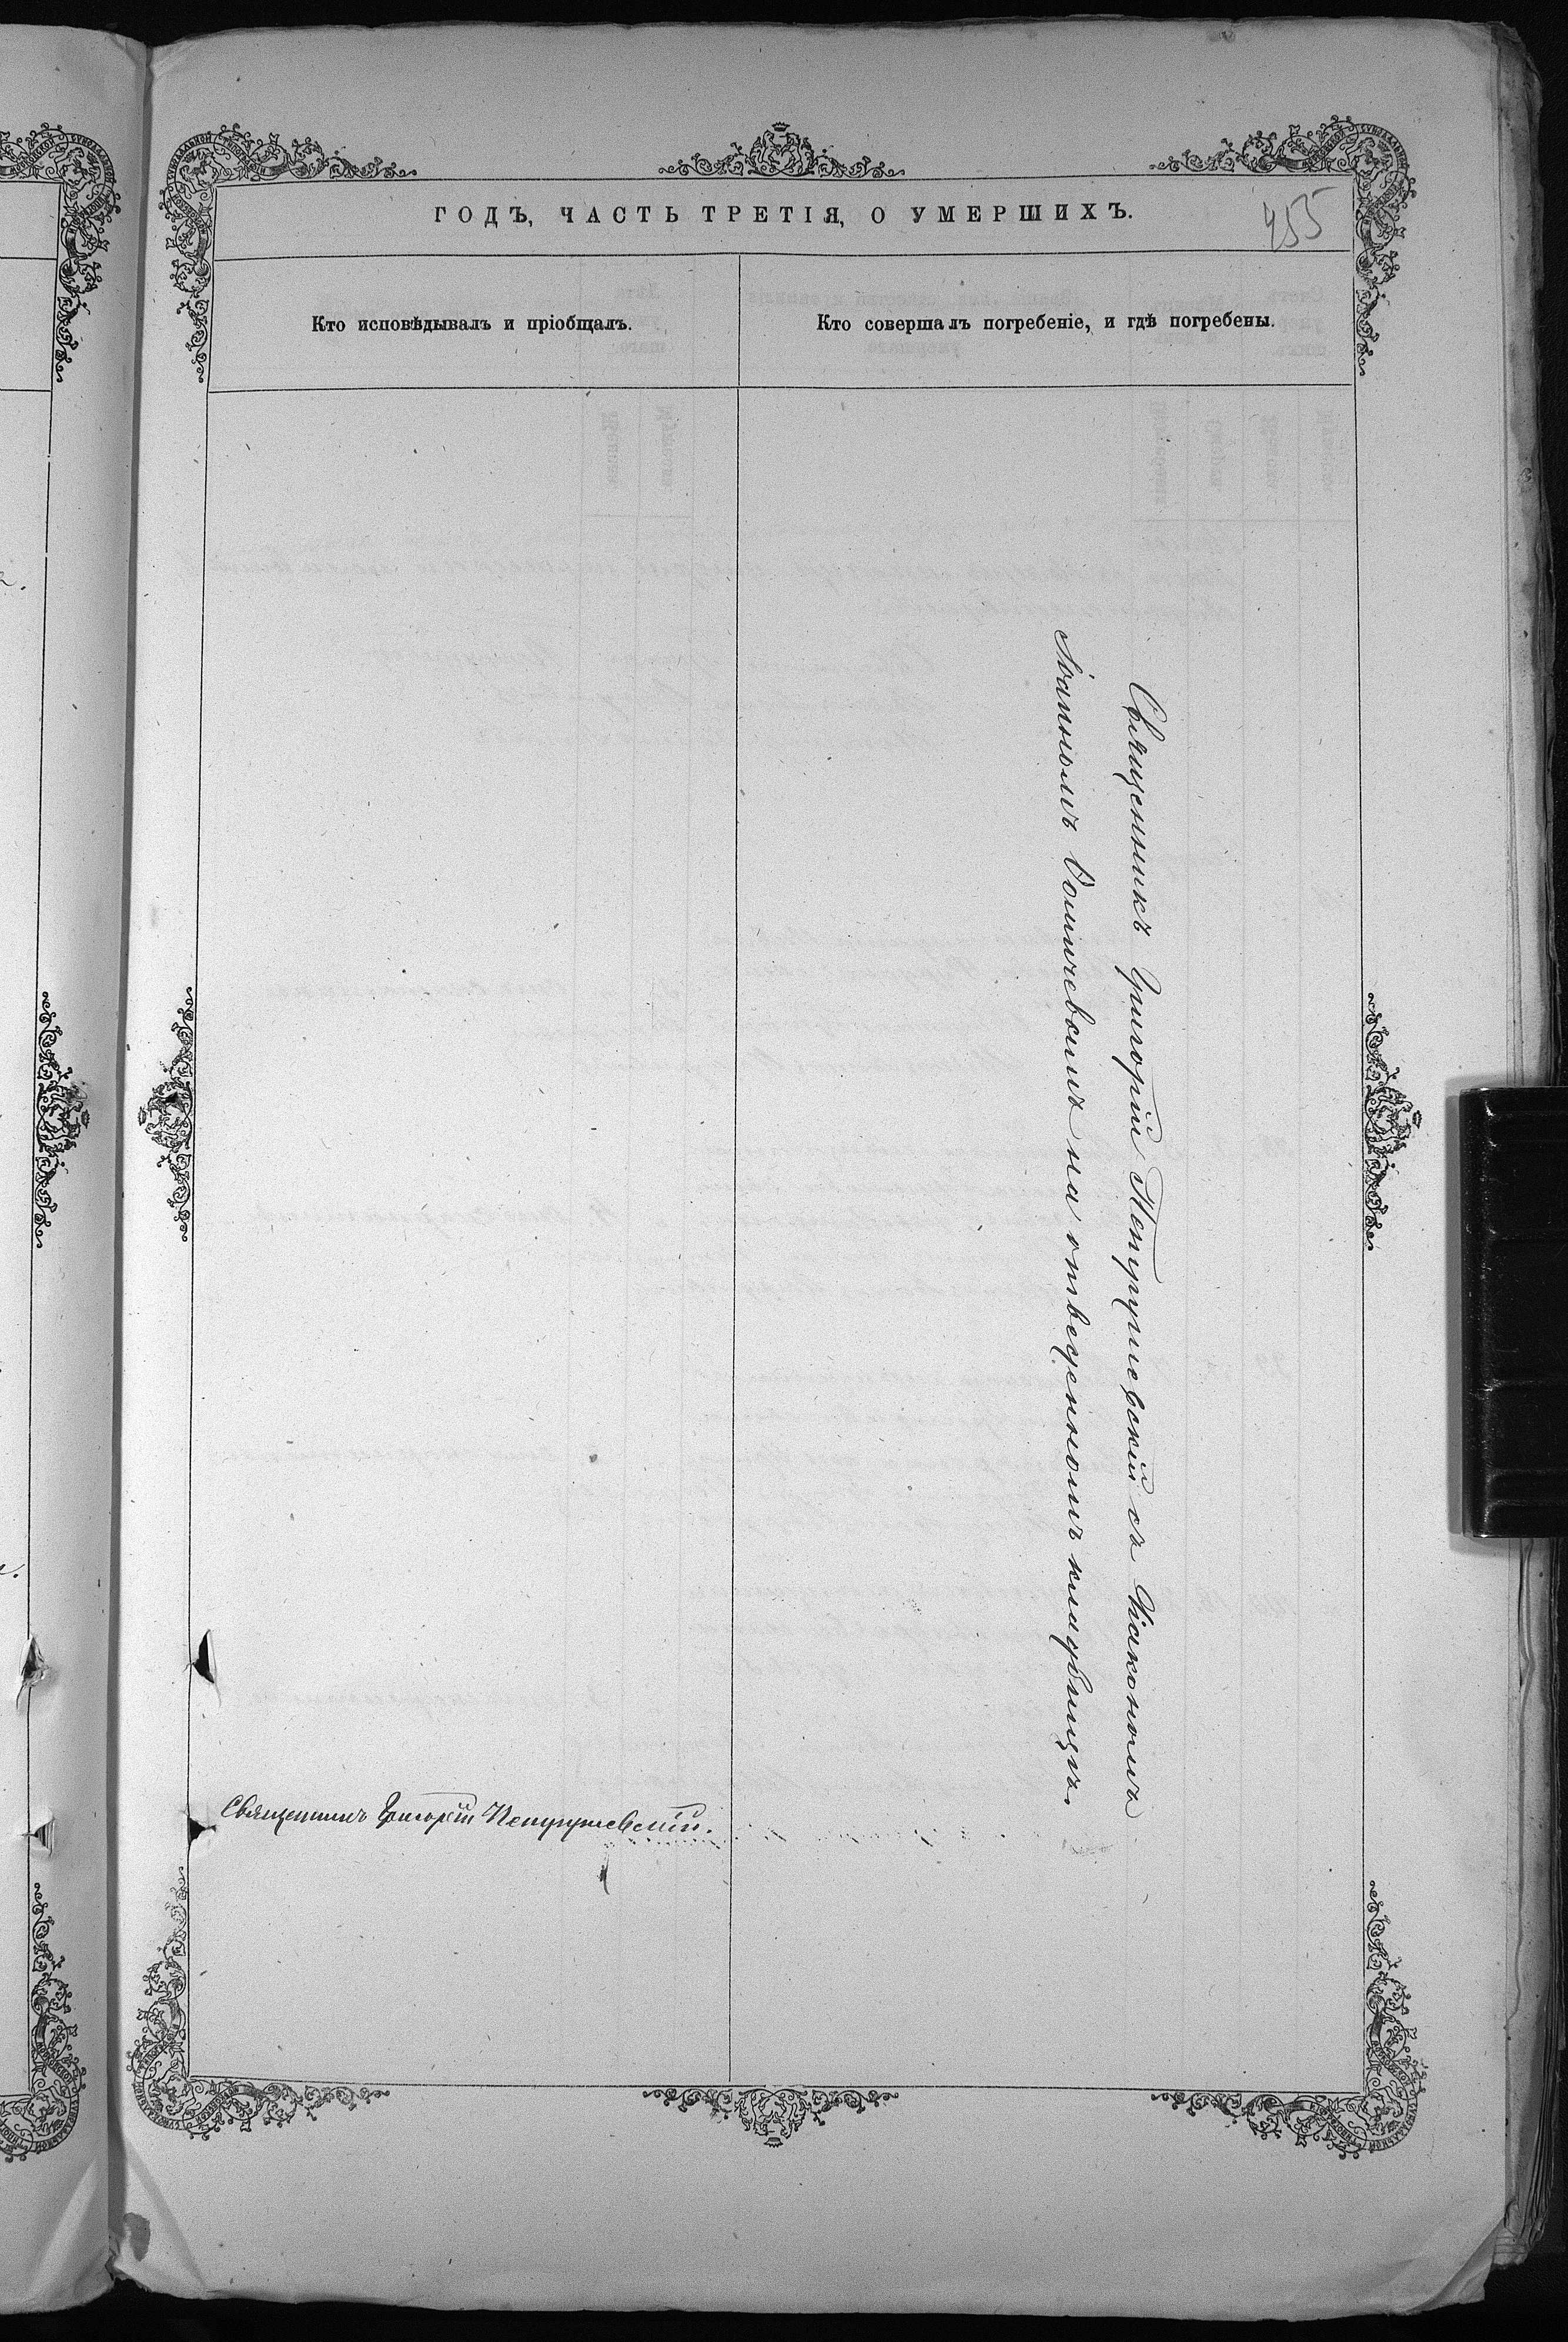 ГОДЪ, ЧАСТЬ ТРЕТІЯ, О УМЕРШИХЪ.
455
Кто исповѣдывалъ и пріобщалъ.
Кто совершалъ погребеніе, и гдѣ погребены.
Священникъ Григорій Петрушевскій съ Діакономъ
на отведенномъ кладбищѣ.
Священникъ Григорій Петрушевскій.